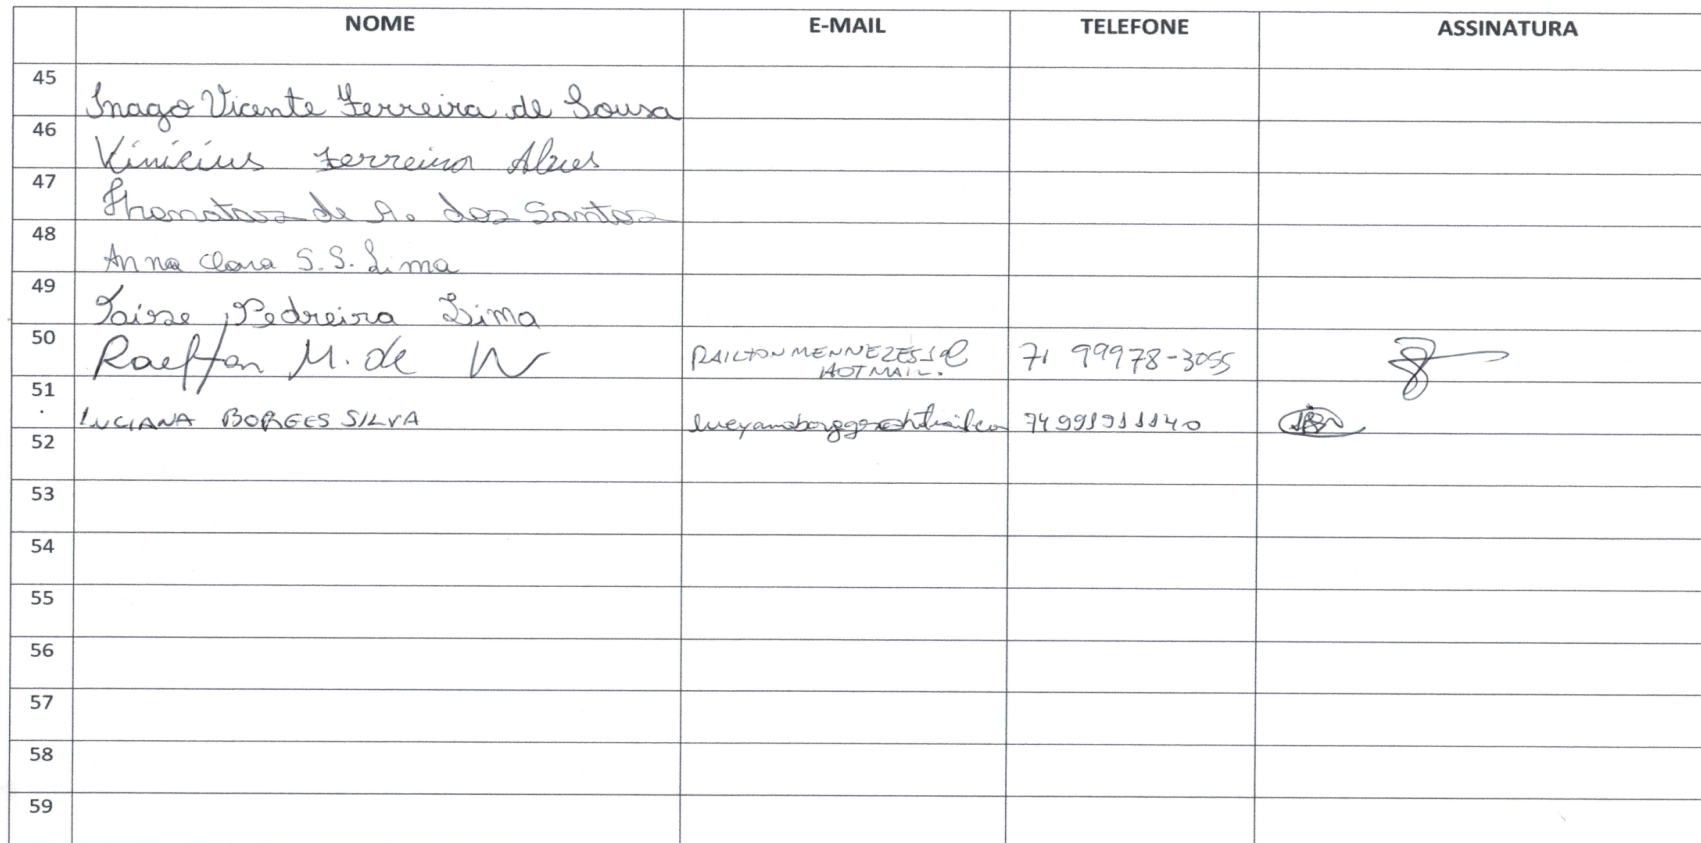 NOME E-MAIL TELEFONE ASSINATURA
45 Inago Vicente Ferreira de Sousa
46 Vinicius Ferreira Alves
47 de A. dos Santos
48 Anna Clara S.S. Lima
49 Taisse Pedreira Lima
50 M. de 71 99978-3055
HOTMAIL.
51 LUCIANA BORGES SILVA 74991911140
52
53
54
55
56
57
58
59